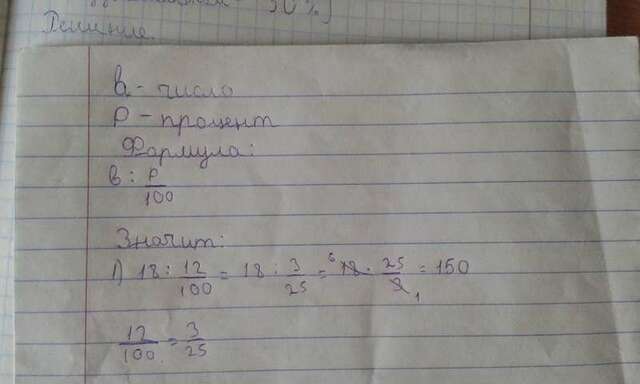 30%]
Решение.
в - число
р - процент
Формула:
в : р/100
Значит:
1) 18 : 12/100 = 18 : 3/25 = 6 18 · 25/3 1 = 150
12/100 = 3/25